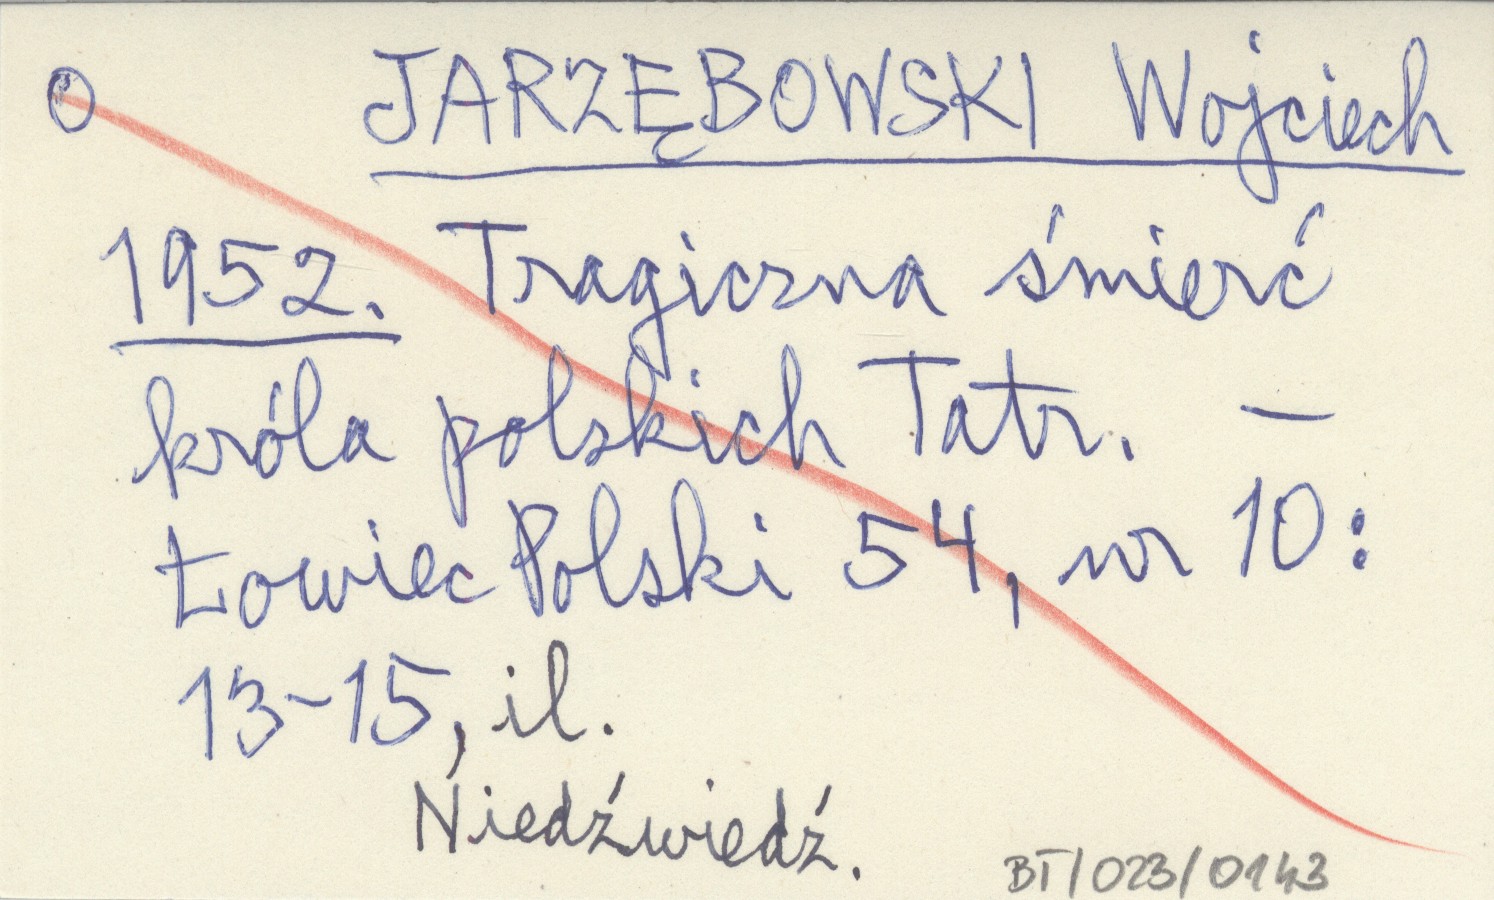 O JARZĘBOWSKI Wojciech
1952. Tragiczna śmierć
króla polskich Tatr. —
Łowiec Polski 54, nr 10:
13-15, il.
Niedźwiedź.
BT/023/0143